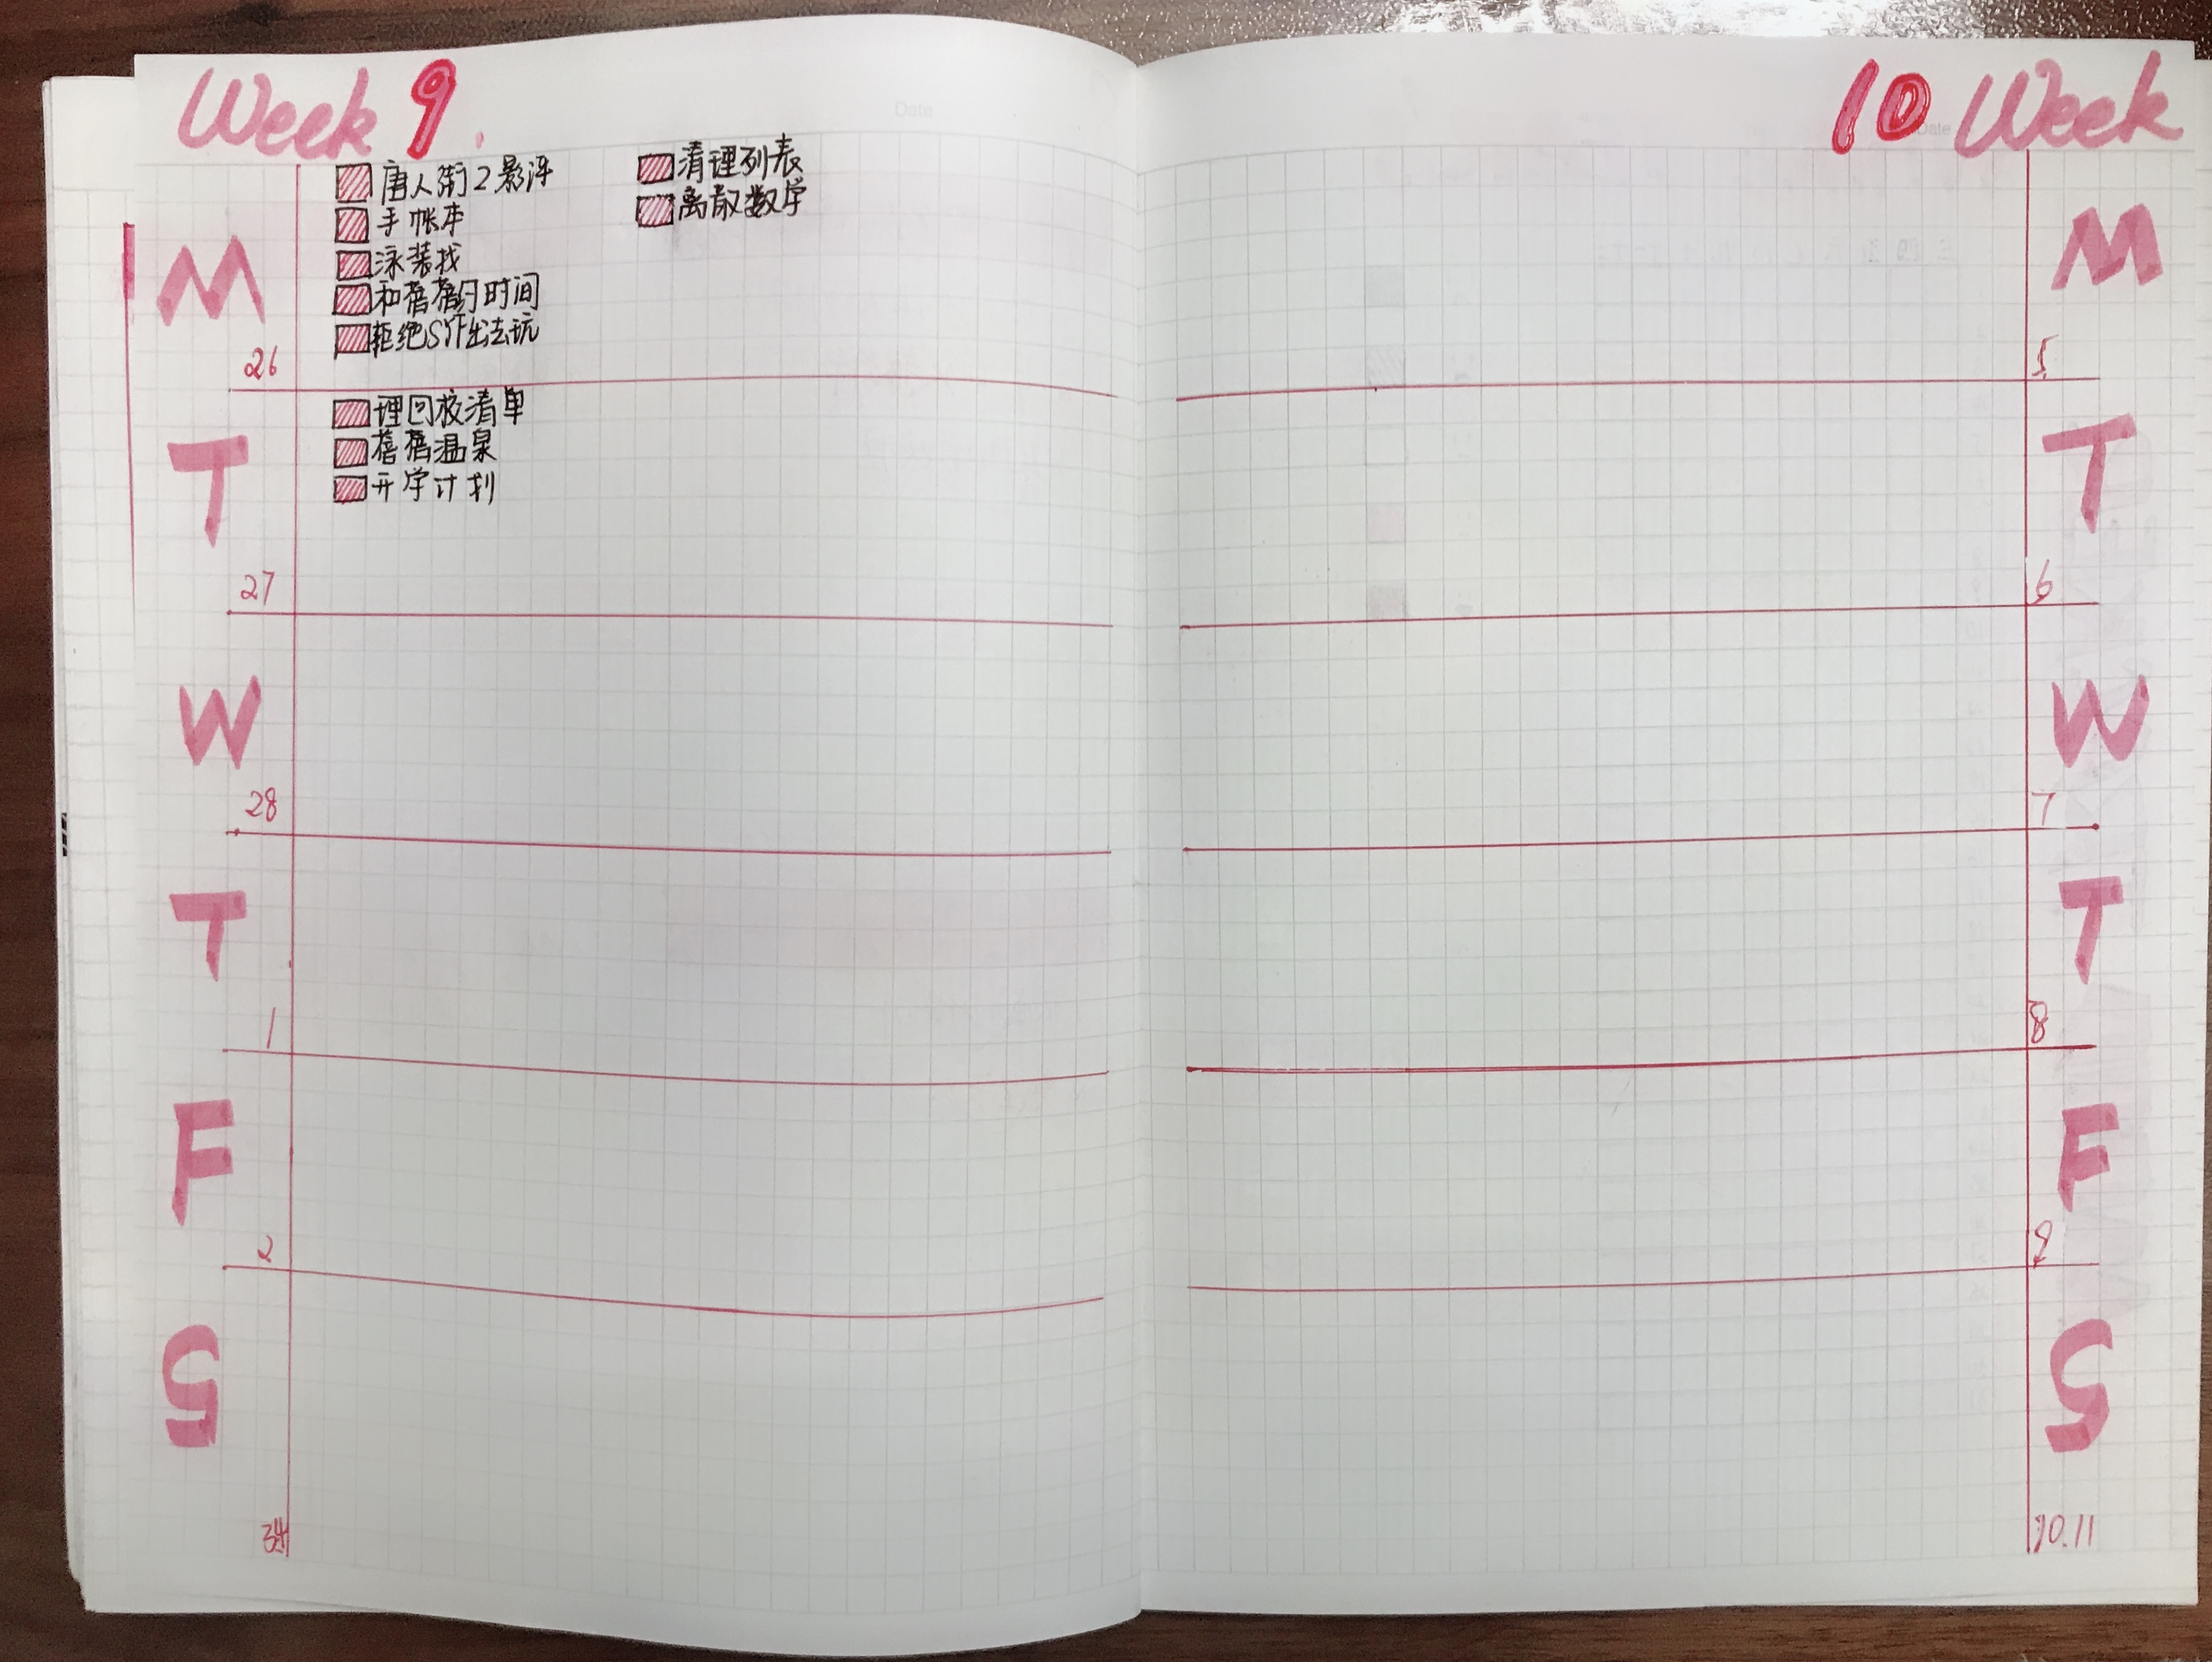 Week 9.
Date
唐人街2影评
手帐本
泳装找
和蓓蓓约时间
拒绝SYF出去玩
清理列表
离散数学
M
26
理回校清单
蓓蓓温泉
开学计划
T
27
W
28
T
1
F
2
S
34
10 Week
Date
M
5
T
6
W
7
T
8
F
9
S
10.11